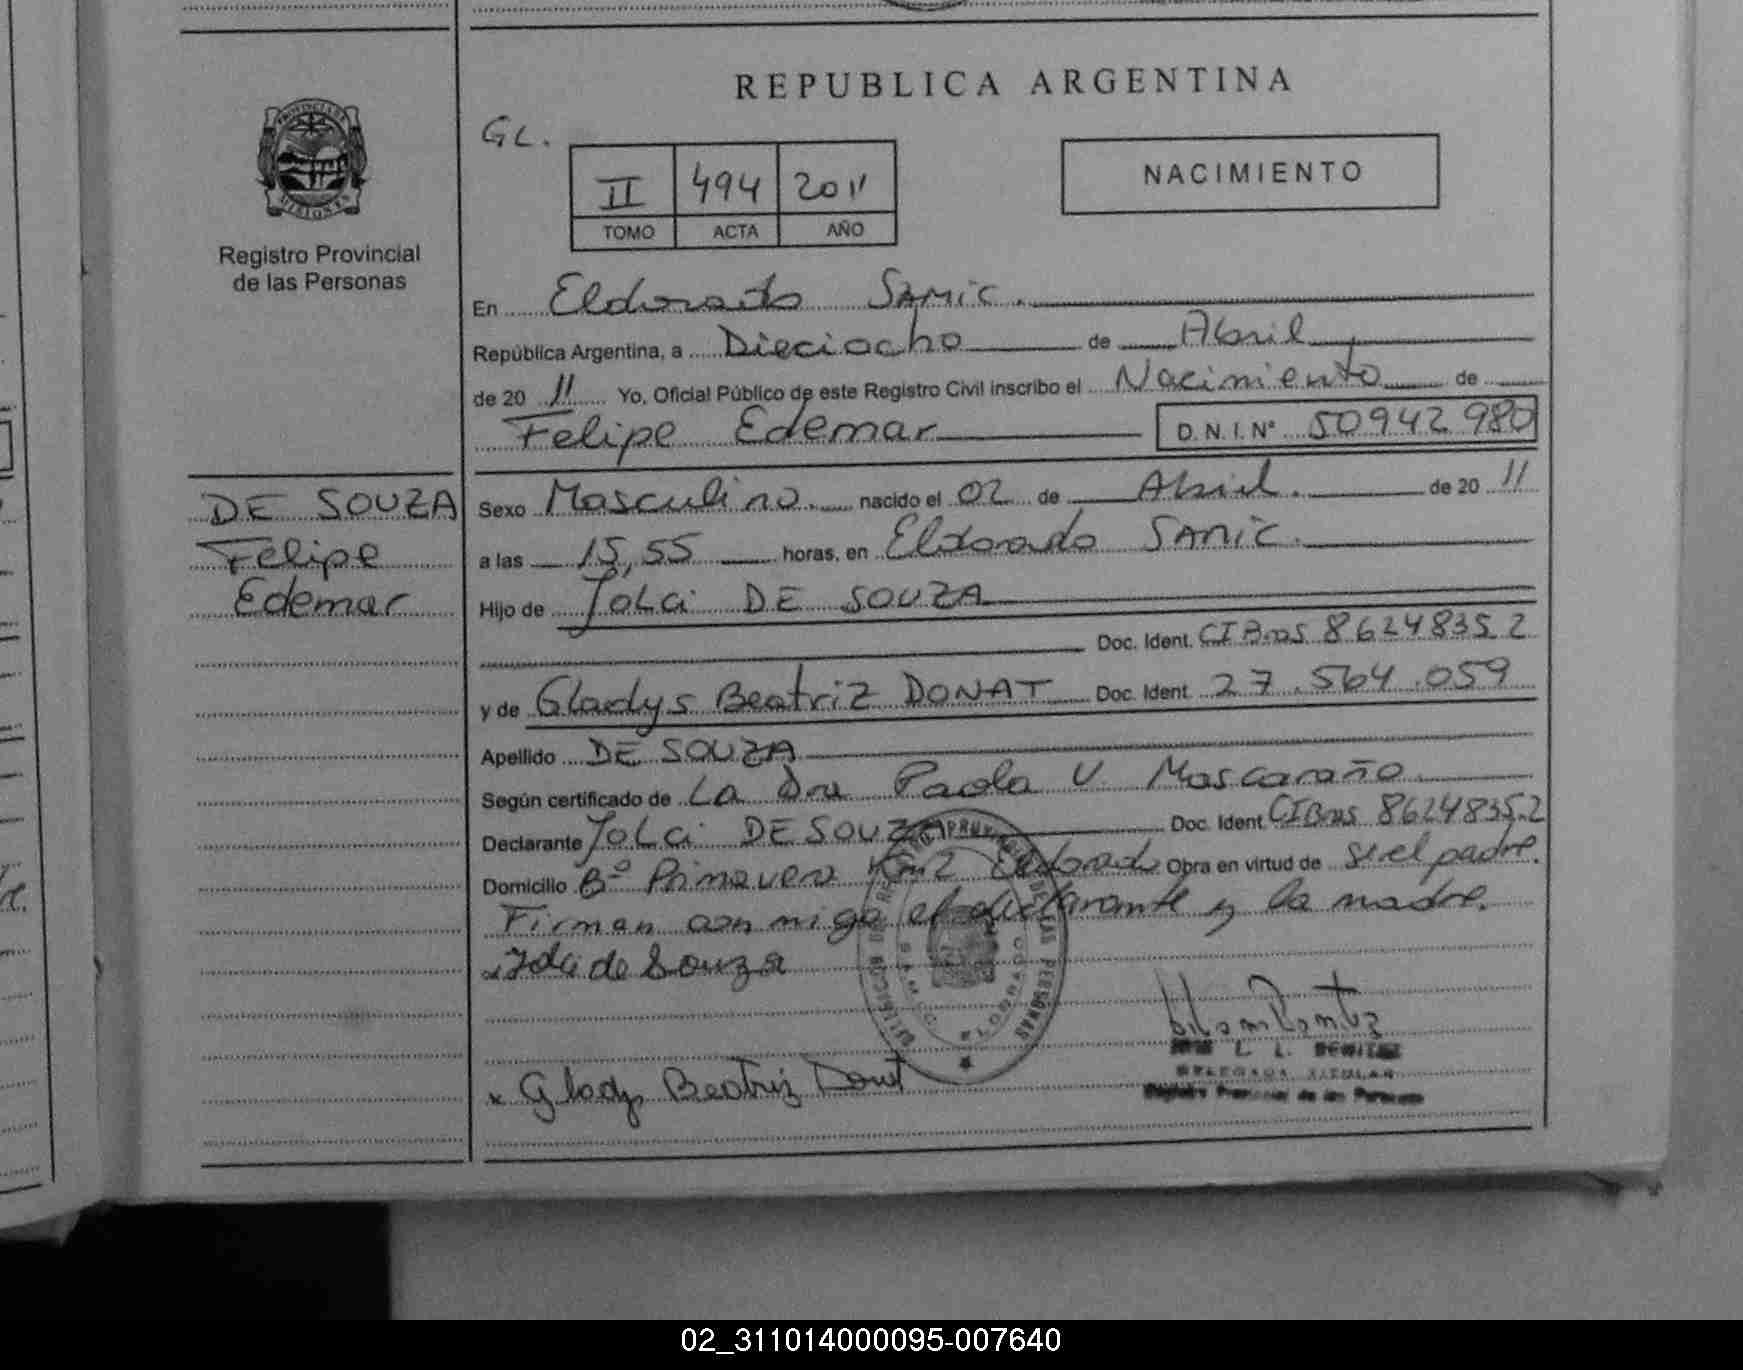 REPUBLICA ARGENTINA
GL.
II 494 2011
TOMO ACTA AÑO
NACIMIENTO
PROVINCIA DE MISIONES
Registro Provincial
de las Personas
En Eldorado SAMIC.
República Argentina, a Dieciocho de Abril
de 20 11 Yo, Oficial Público de este Registro Civil inscribo el Nacimiento de
Felipe Edemar D.N.I.Nº 50942980
DE SOUZA
Felipe
Edemar
Sexo Masculino. nacido el 02 de Abril. de 20 11
a las 15,55 horas, en Eldorado SAMIC.
Hijo de Jolci DE SOUZA
Doc. Ident. CI Bras 86248352
y de Gladys Beatriz DONAT Doc. Ident. 27.564.059
Apellido DE SOUZA
Según certificado de La Dra Paola V. Mascaraño
Declarante Jolci DE SOUZA Doc. Ident. CIBras 86248352
Domicilio Bº Primavera Km2 Eldorado Obra en virtud de ser el padre.
Firman con migo el declarante y la madre.
de Souza
x Gladys Beatriz Donat
L. L. BENITEZ
DELEGADA TITULAR
Registro Provincial de las Personas
02_311014000095-007640